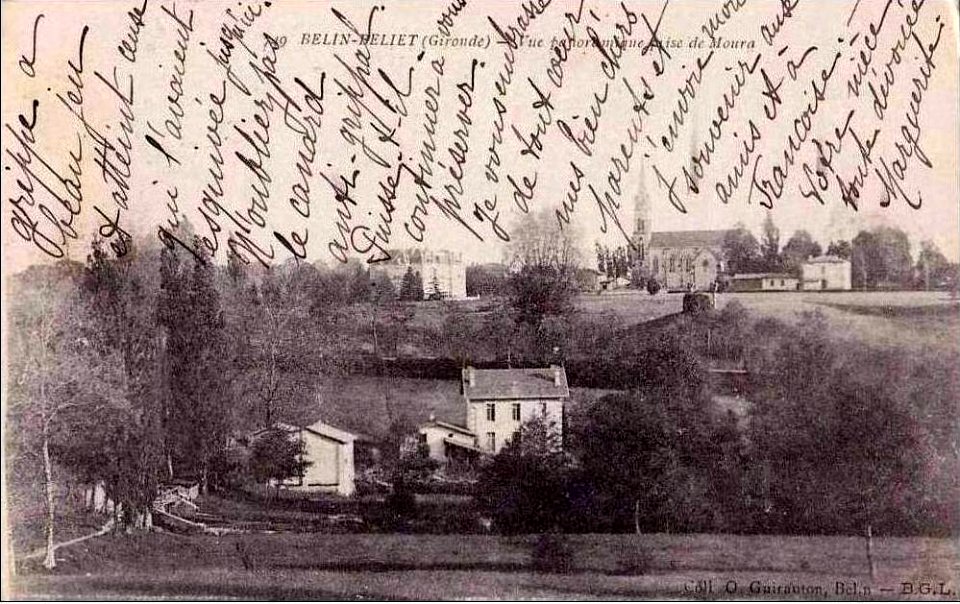 19 BELIN-BELIET (Gironde) — Vue panoramique prise de Moura
grippe a
beau jeu
et atteint ceux
qui l'avaient
esquivée jusqu'ici.
N'oubliez pas
le canard
anti-grippal.
Puisse-t-il
continuer à vous
préserver.
Je vous embrasse
de tout coeur
mes bien chers
parents et
j'envoie mon
souvenir aux
amis et à
Françoise.
Votre nièce
toute dévouée
Marguerite.
Coll. O. Guirauton, Belin — B.G.L.